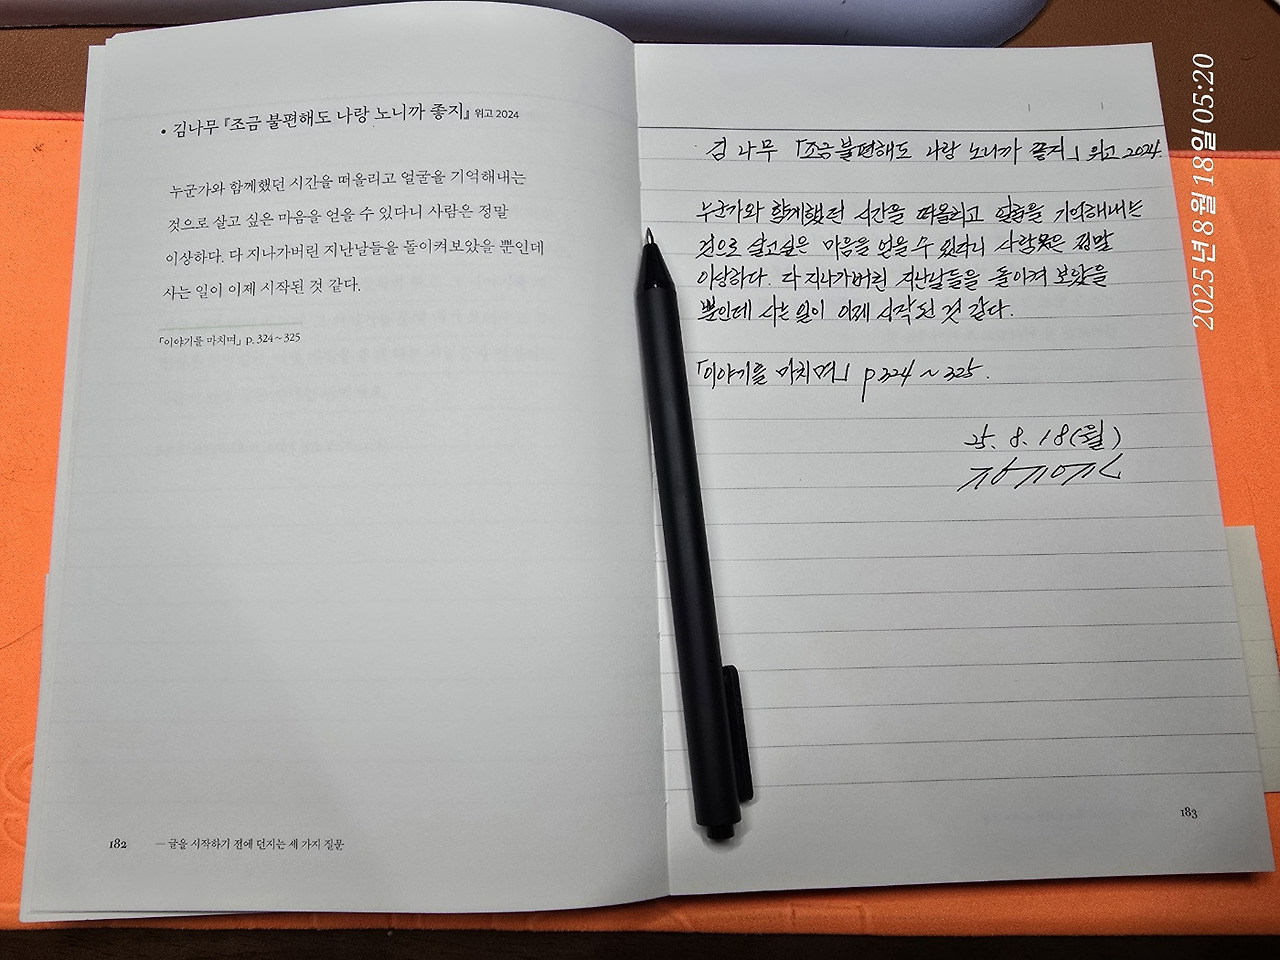 • 김나무 『조금 불편해도 나랑 노니까 좋지』 위고 2024
누군가와 함께했던 시간을 떠올리고 얼굴을 기억해내는
것으로 살고 싶은 마음을 얻을 수 있다니 사람은 정말
이상하다. 다 지나가버린 지난날들을 돌이켜보았을 뿐인데
사는 일이 이제 시작된 것 같다.
「이야기를 마치며」 p. 324~325
182 — 글을 시작하기 전에 던지는 세 가지 질문
김나무 「조금 불편해도 나랑 노니까 좋지」 위고 2024.
누군가와 함께했던 시간을 떠올리고 얼굴을 기억해내는
것으로 살고싶은 마음을 얻을 수 있다니 사람은 정말
이상하다. 다 지나가버린 지난날들을 돌이켜 보았을
뿐인데 사는 일이 이제 시작된 것 같다.
「이야기를 마치며」 p324 ~ 325.
25. 8. 18(월)
183
2025년 8월 18일 05:20